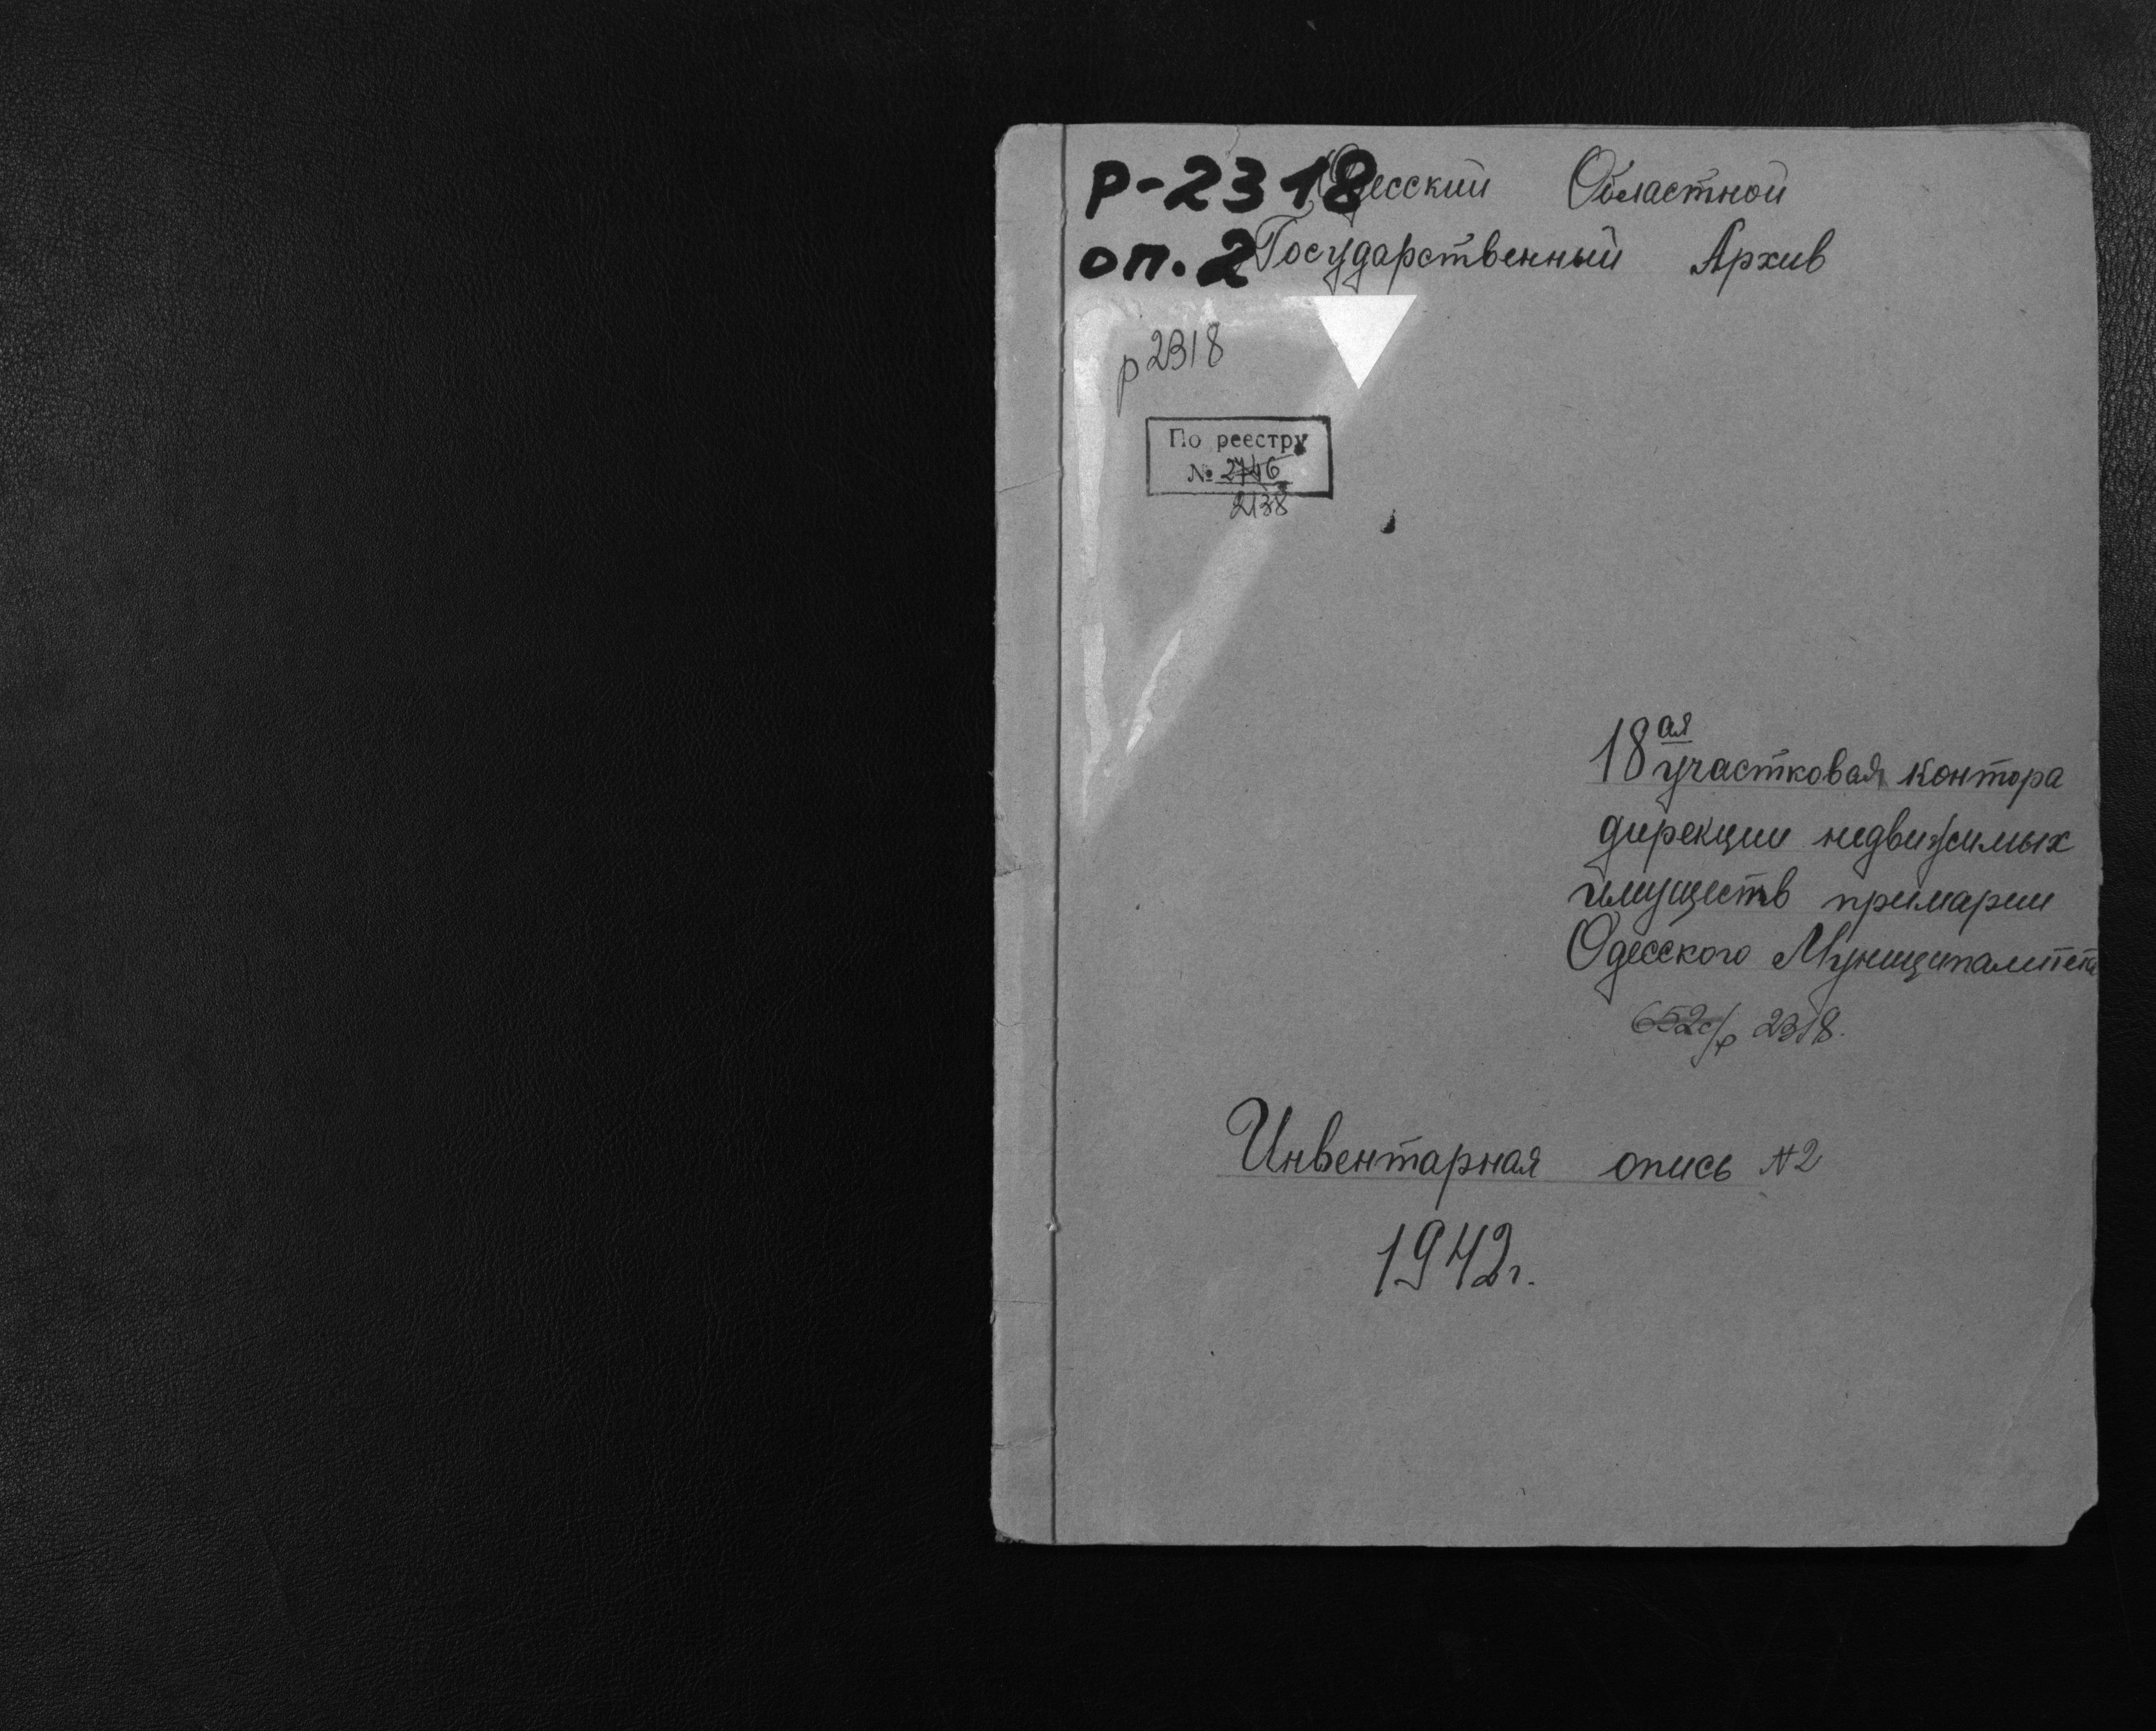 Р-2318
Одесский Областной
оп. 2
Государственный Архив
р 2318
По реестру
№ 2746
2138
18ая участковая контора
дирекции недвижимых
имуществ примарии
Одесского Муниципалитета
652с/р 2318.
Инвентарная опись №2
1942г.